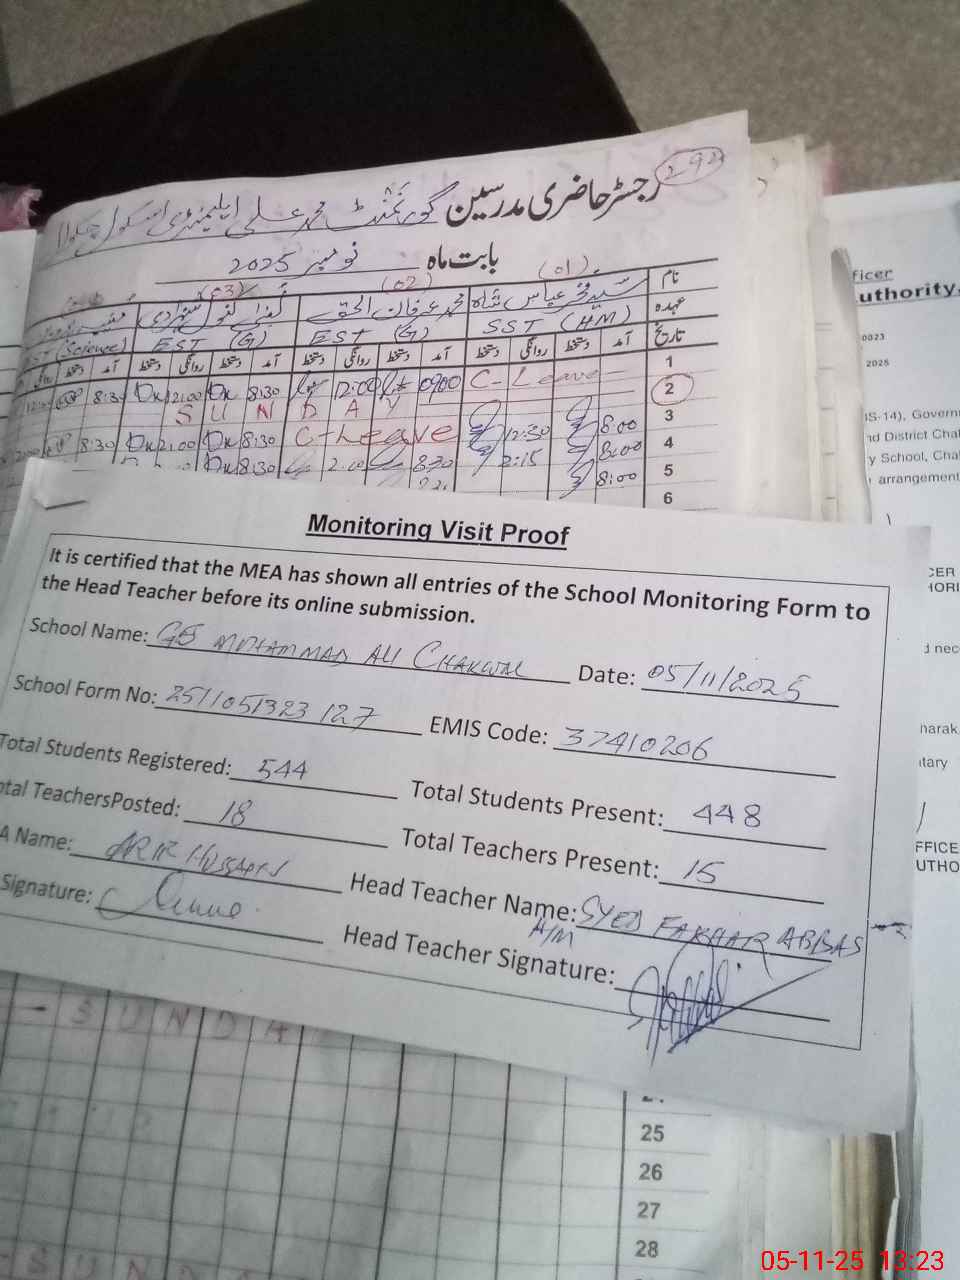 292
رجسٹر حاضری مدرسین گورنمنٹ محمد علی ایلیمنٹری اسکول چکوال
بابت ماہ نومبر 2025
(03) (02) (01)
نام سید فخر عباس شاہ محمد عرفان الحق
عہدہ SST (HM) EST (G) EST (G) (Science)
تاریخ آمد دستخط روانگی دستخط آمد دستخط روانگی دستخط آمد دستخط روانگی دستخط آمد دستخط روانگی
1 C-Leave 0900 12:00 8:30 12:00 8:30
2 SUNDAY
3 8:00 12:30 C-Leave 8:30 2:00 8:30
4 8:00 2:15 8:30 2:00 8:30
5 8:00
6
Monitoring Visit Proof
It is certified that the MEA has shown all entries of the School Monitoring Form to
the Head Teacher before its online submission.
School Name: GES MUHAMMAD ALI CHAKWAL Date: 05/11/2025
School Form No: 2511051323127 EMIS Code: 37410206
Total Students Registered: 544 Total Students Present: 448
Total TeachersPosted: 18 Total Teachers Present: 15
A Name: HUSSAIN Head Teacher Name: SYED FAKHAR ABBAS
Signature: H/M
Head Teacher Signature:
SUNDA
25
26
27
28
SUNDA
ficer
uthority,
0023
2025
(S-14), Govern
nd District Cha
y School, Cha
arrangement
CER
HORI
d nec
harak
tary
FFICE
UTHO
05-11-25 13:23